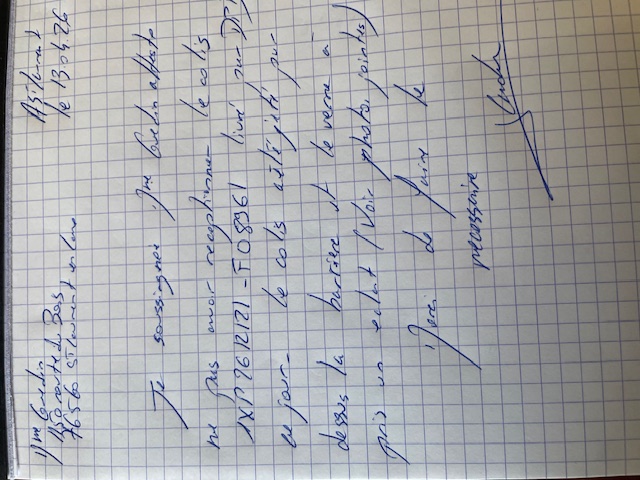 Mme
76560 St Laurent en Caux
A St Laurent
le 13.04.26
Je soussignée Mme atteste
ne pas avoir réceptionner le colis
1XP9612121-F08961 livré par DPD
ce jour. Le colis a été jeté par
dessus la barrière et le verre a
pris un eclat (Voir photos jointes)
Merci de faire le
nécessaire